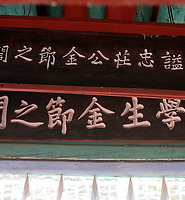 謚忠莊公金節之閭
學生金節之閭